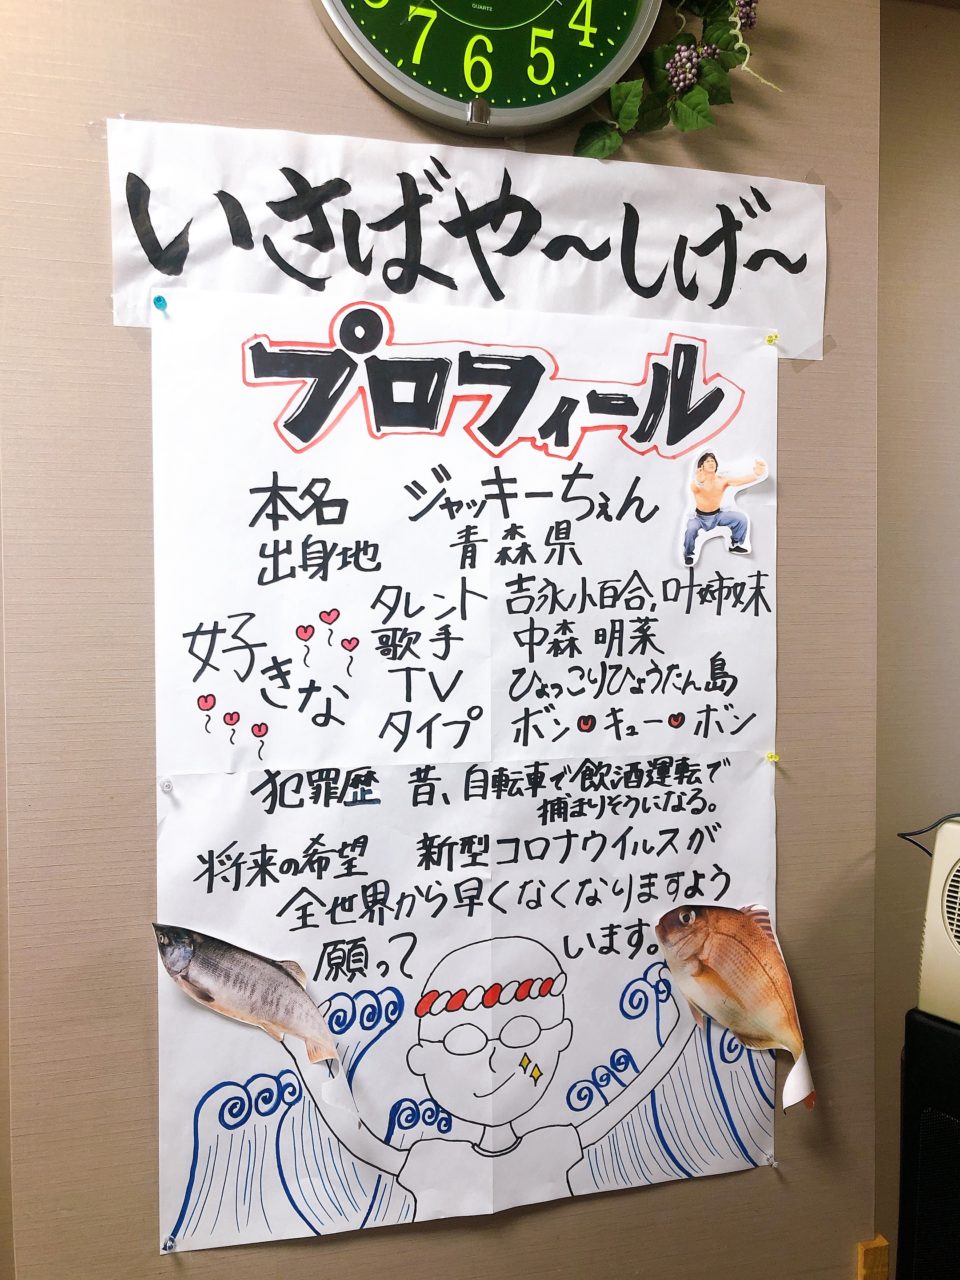 7 6 5 4
QUARTZ
いさばや〜しげ〜
プロフィール
本名 ジャッキーちぇん
出身地 青森県
好きな
タレント 吉永小百合、叶姉妹
歌手 中森明菜
TV ひょっこりひょうたん島
タイプ ボン♥キュー♥ボン
犯罪歴 昔、自転車で飲酒運転で
捕まりそうになる。
将来の希望 新型コロナウイルスが
全世界から早くなくなりますよう
願って います。